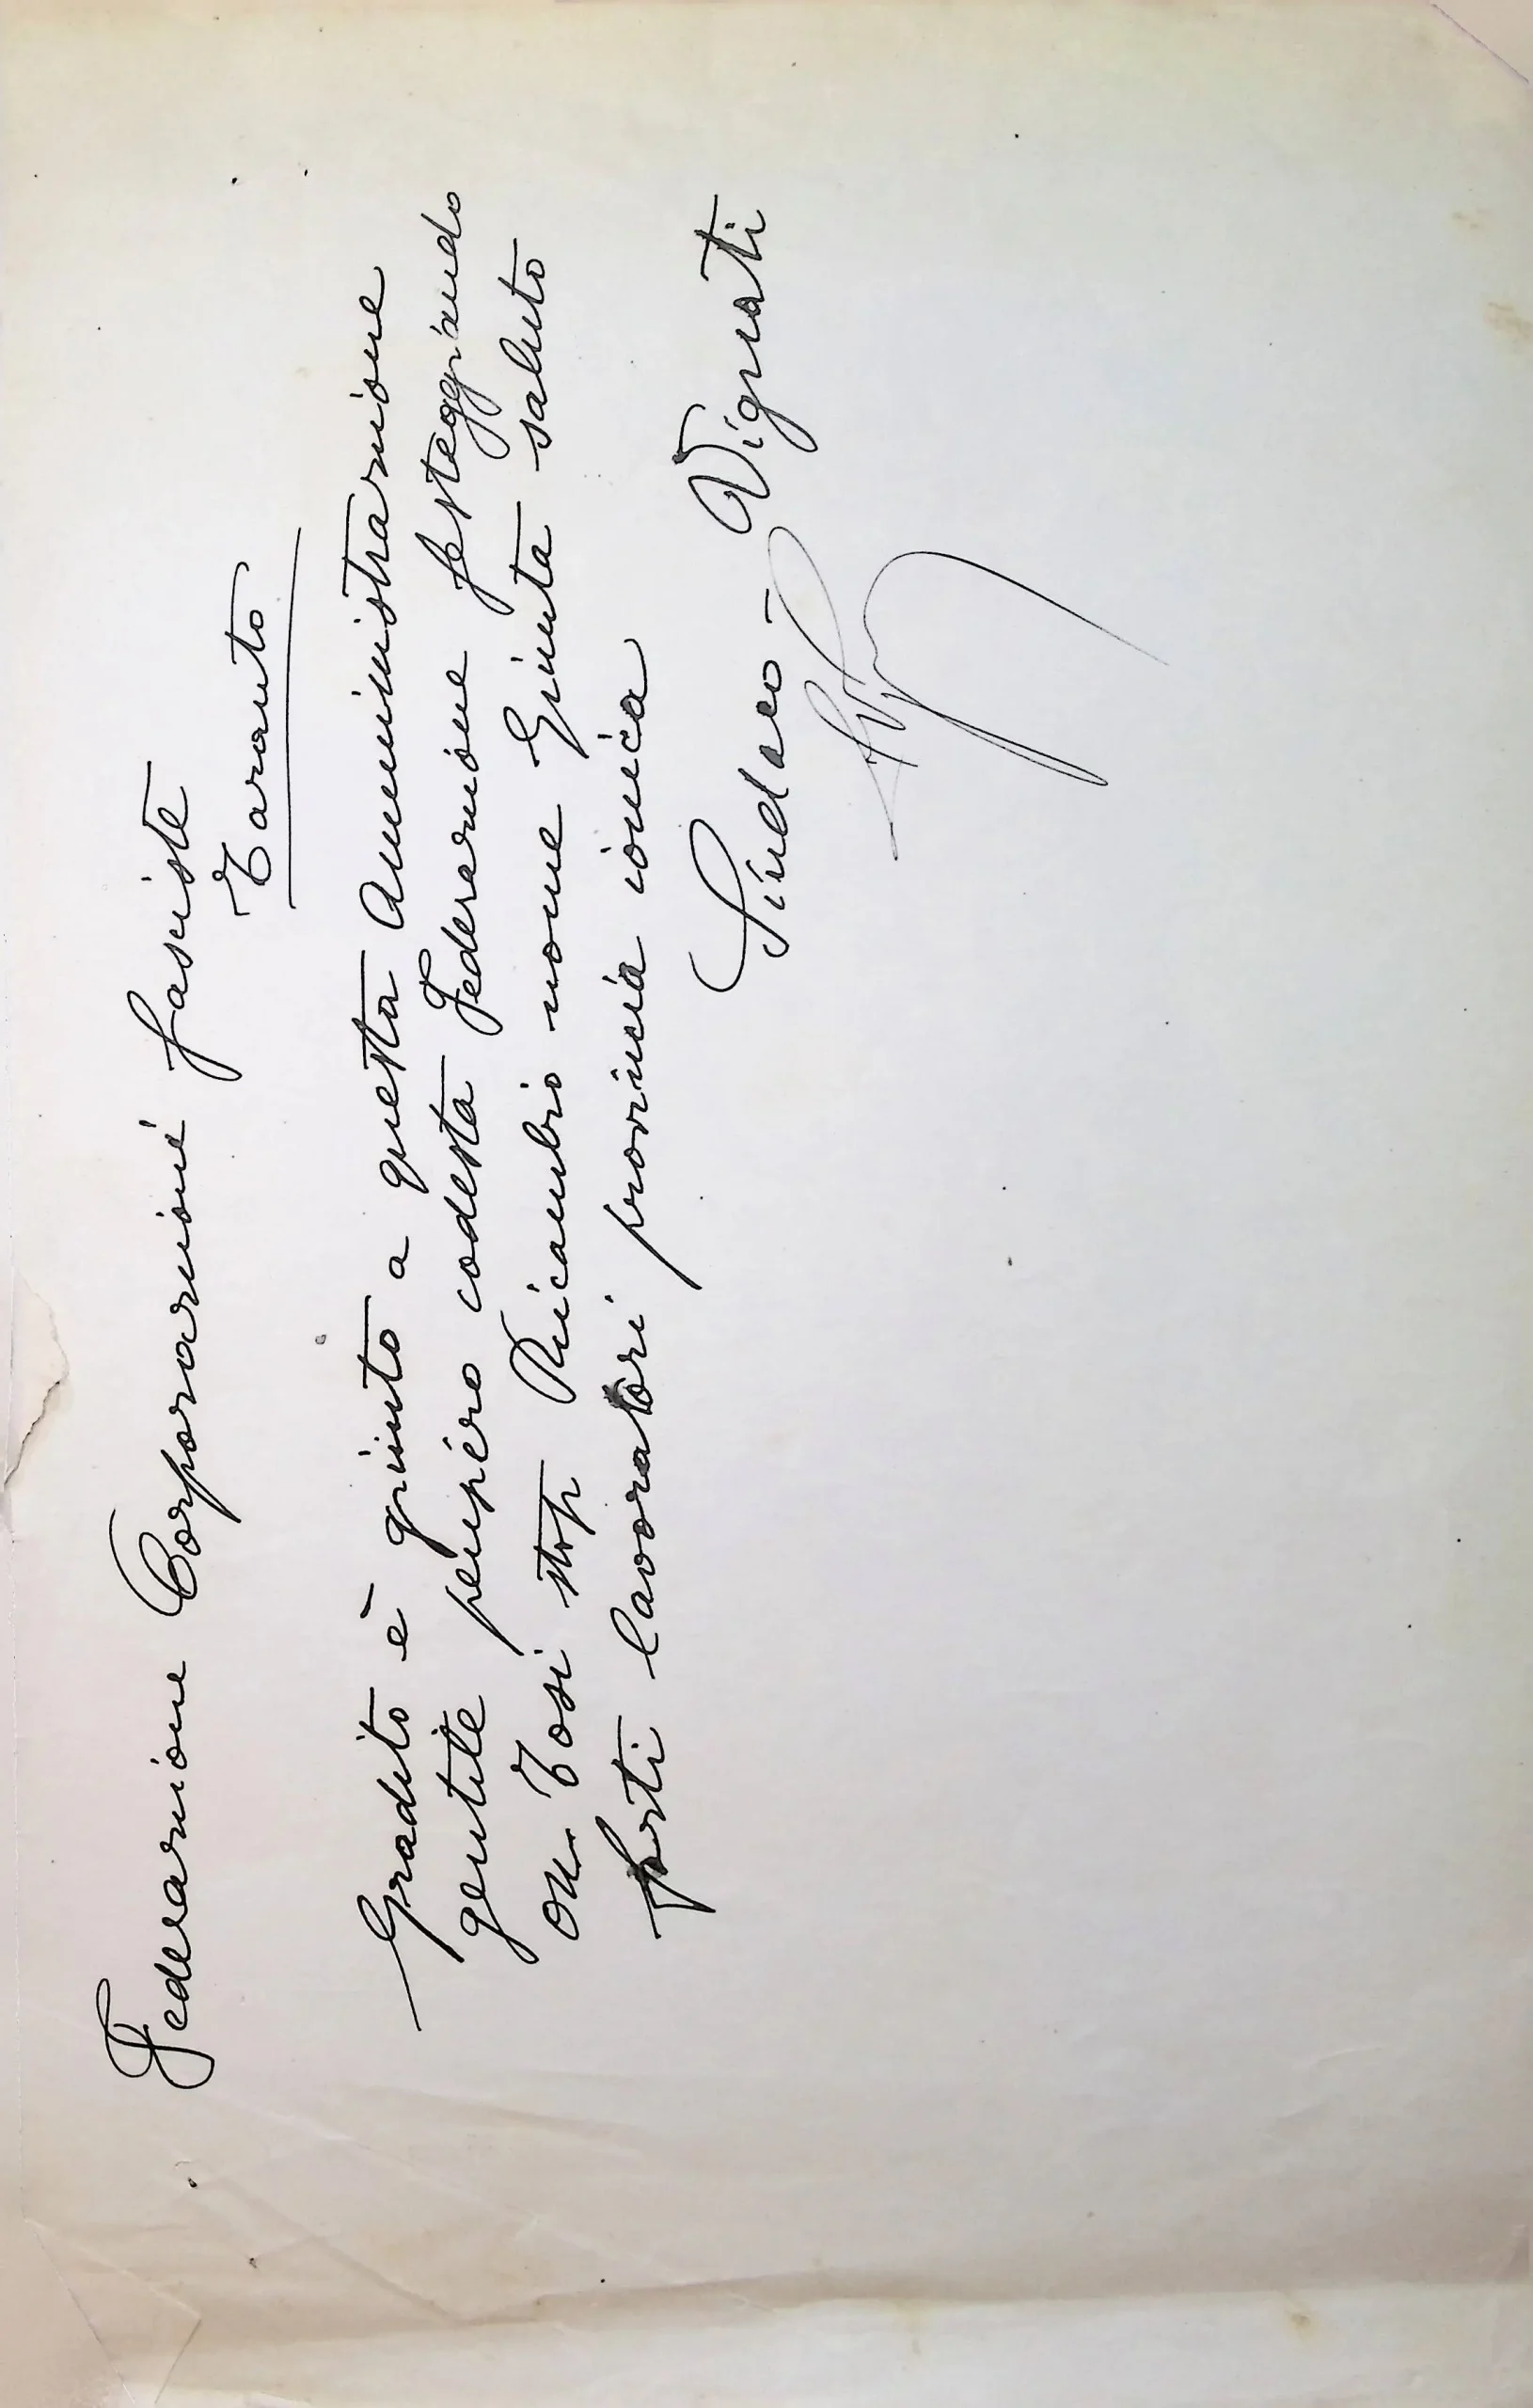 Federazione Corporazioni fasciste
Taranto
Gradito è giunto a questa Amministrazione
gentile pensiero codesta Federazione festeggiando
on. Tosi stop Ricambio nome Giunta saluto
forti lavoratori provincia ionica
Sindaco - Vignati